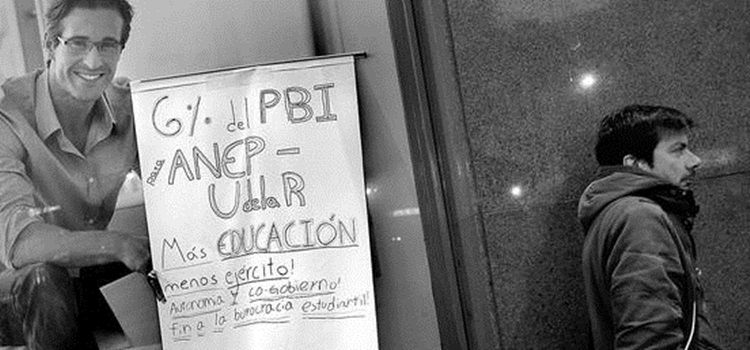 6% del PBI
para ANEP -
UdelaR
Más EDUCACIÓN
menos ejército!
Autonomía y co-gobierno!
fin a la burocracia estudiantil!